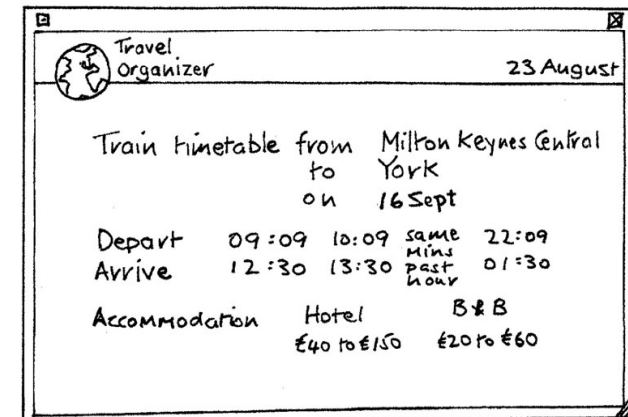 Travel
Organizer
23 August
Train timetable from Milton Keynes Central
to York
on 16 Sept
Depart 09:09 10:09 same mins past hour 22:09
Arrive 12:30 13:30 01:30
Accommodation Hotel B & B
£40 to £150 £20 to £60